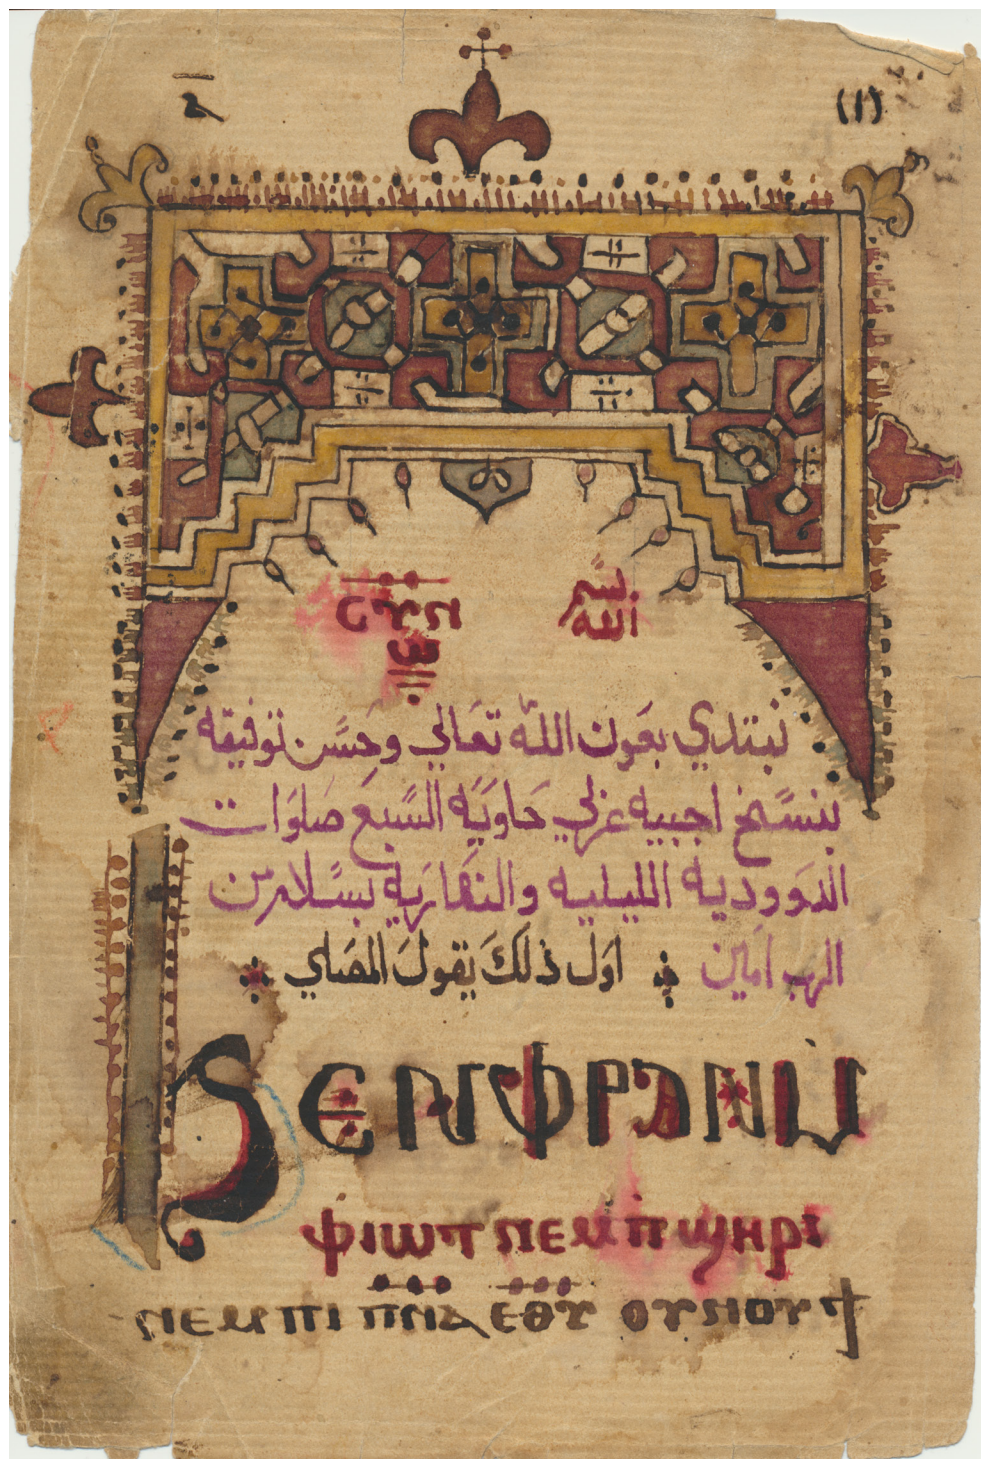 ⲁ̅ (١)
ⲥⲩⲛ بسم
الله
نبتدي بعَون اللّه تعَالي وحَسَن توفيقه
بنسَخ اجبيه حَاويَة السَبعَ صَلوَات
الدَوودية الليليه والنهَاريه بسَلام من
الرب امَين اوَل ذلكَ يقولَ المصَلي
ϦⲈⲚⲪⲢⲀⲚⲘ
ⲫⲓⲱⲧ ⲛⲉⲙ ⲡϣⲏⲣⲓ
ⲛⲉⲙ ⲡⲓ ⲡ̅ⲛ̅ⲁ̅ ⲉ̅ⲑ̅ⲩ̅ ⲟⲩⲛⲟⲩϯ